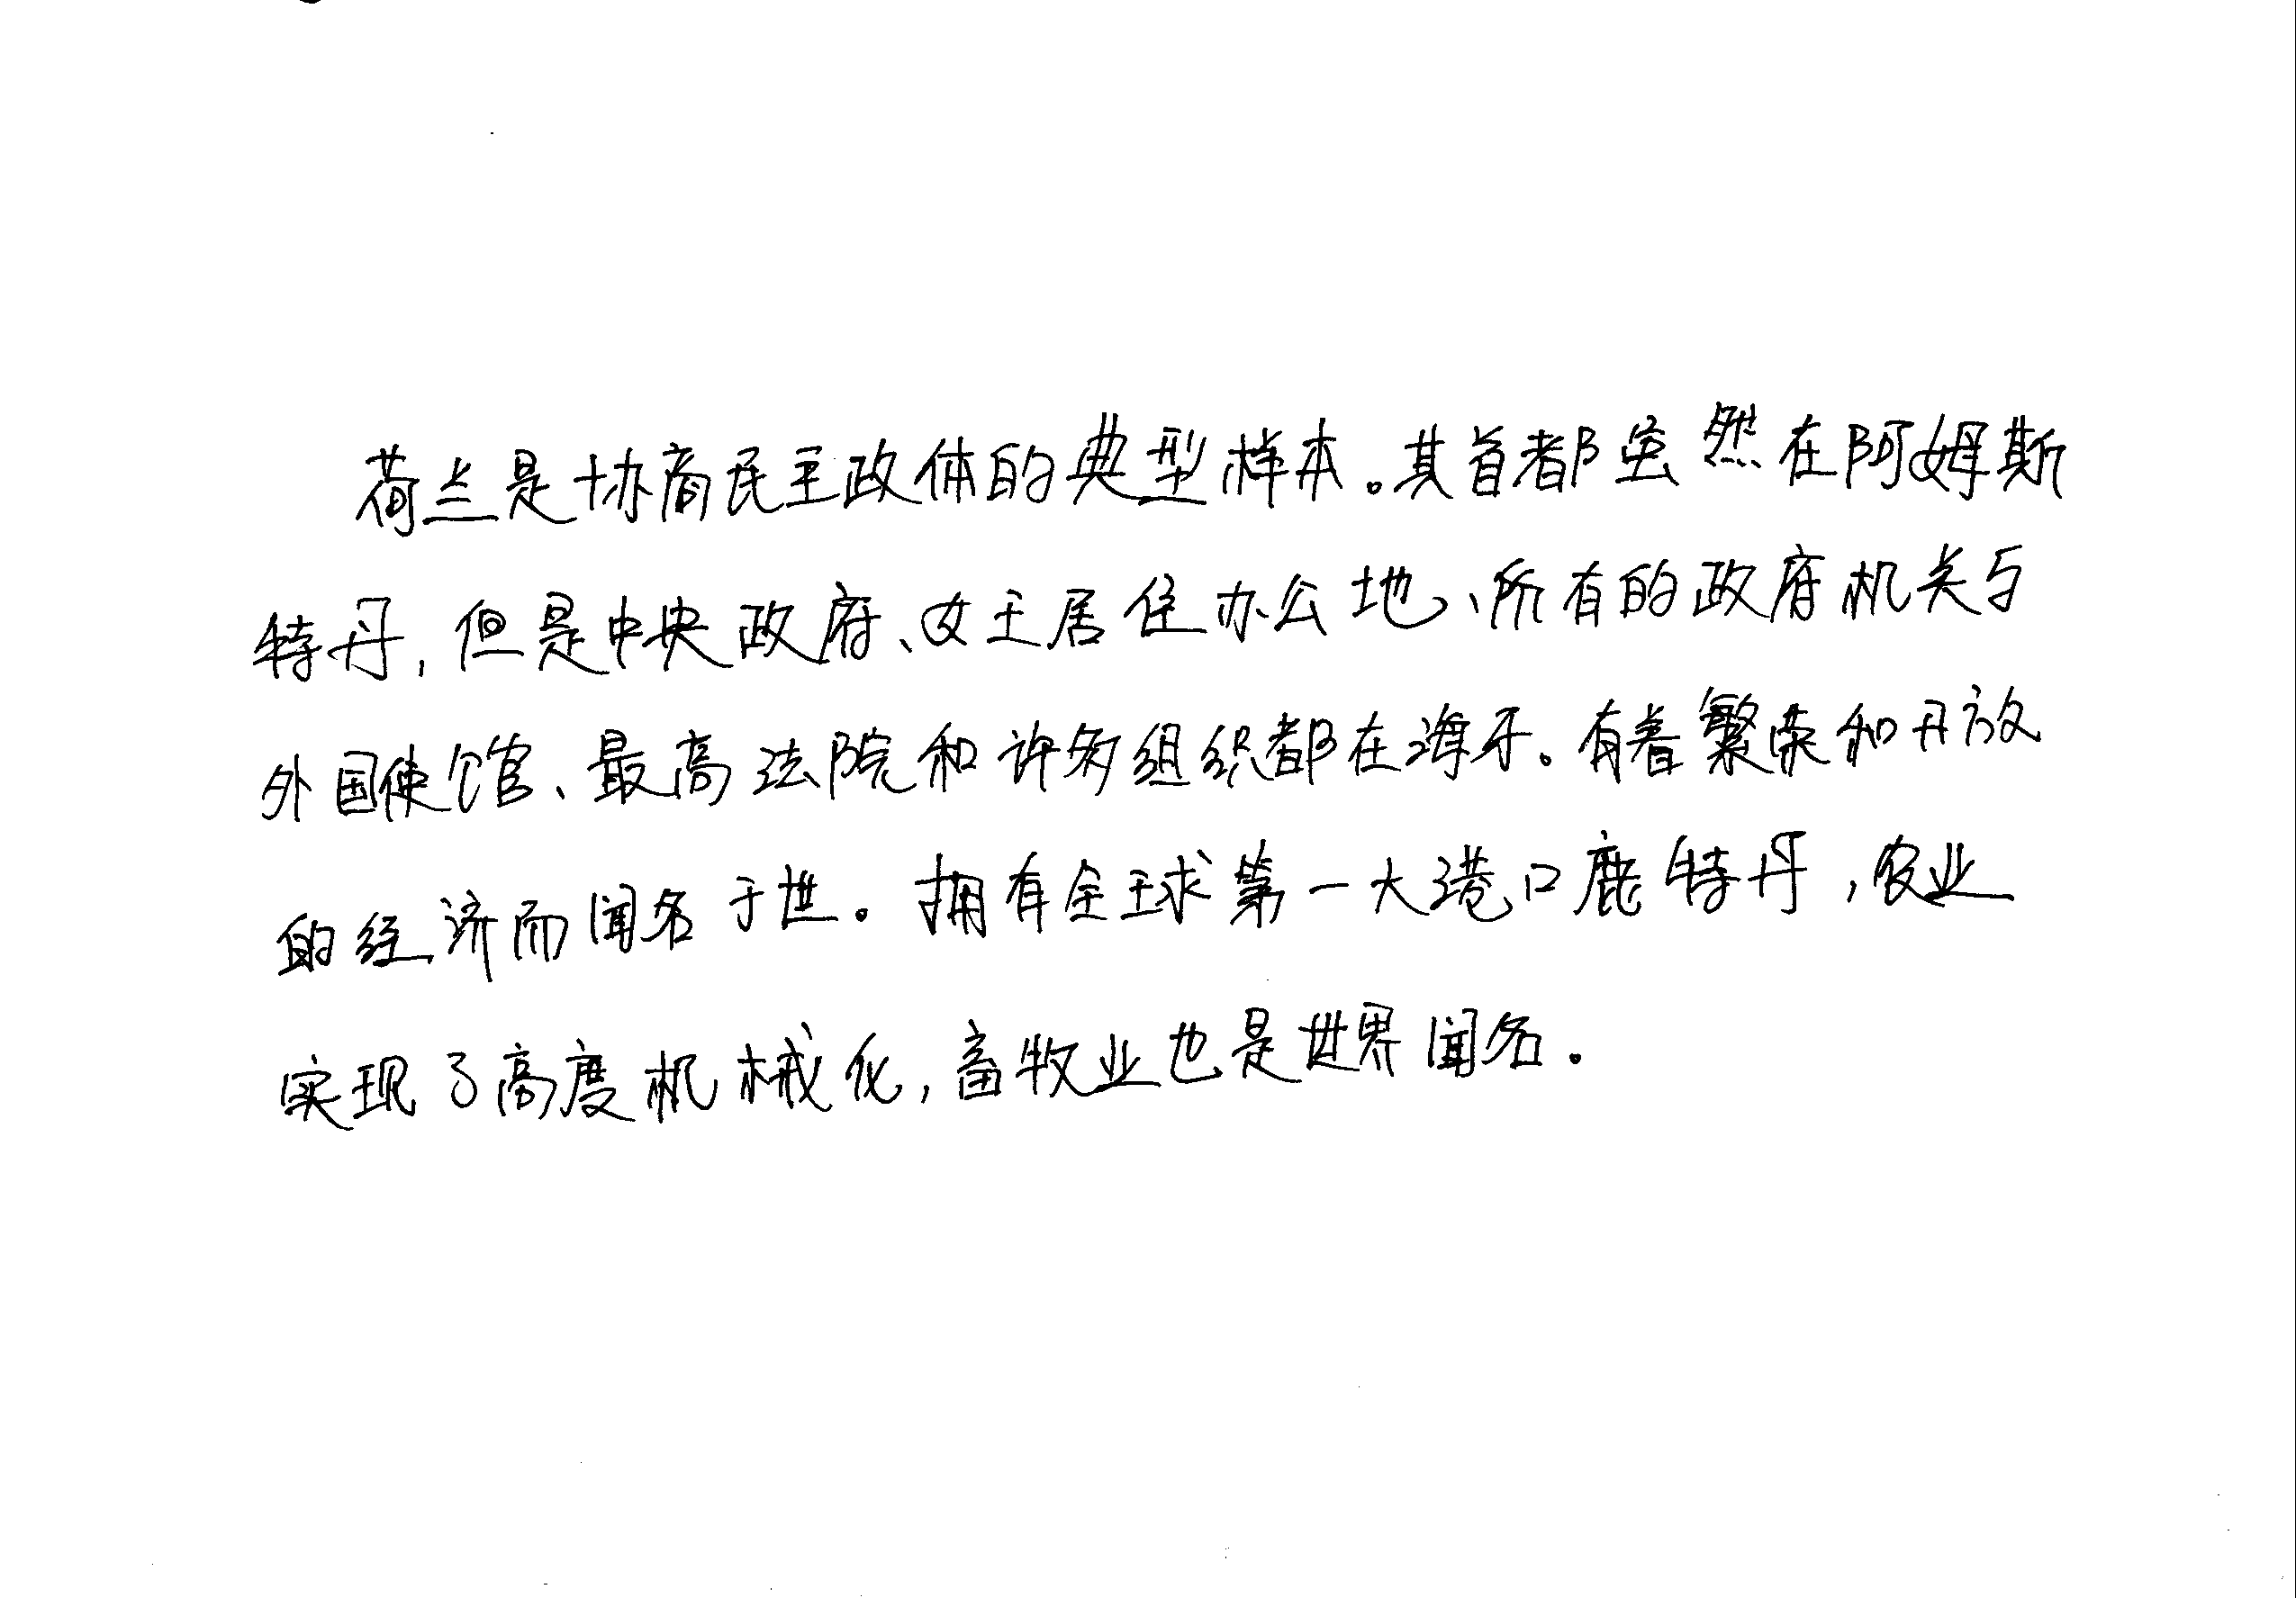 荷兰是协商民主政体的典型样本。其首都虽然在阿姆斯
特丹，但是中央政府、女王居住办公地、所有的政府机关与
外国使馆、最高法院和许多组织都在海牙。有着繁荣和开放
的经济而闻名于世。拥有全球第一大港口鹿特丹，农业
实现了高度机械化，畜牧业也是世界闻名。